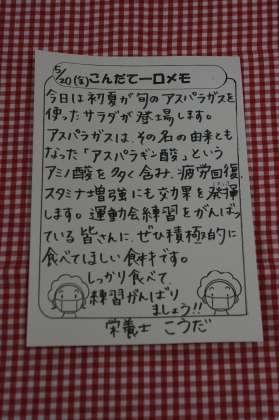 5/20(金)こんだて一口メモ
今日は初夏が旬のアスパラガスを
使ったサラダが登場します。
アスパラガスは、その名の由来とも
なった「アスパラギン酸」という
アミノ酸を多く含み、疲労回復、
スタミナ増強にも効果を発揮
します。運動会練習をがんばっ
ている皆さんに、ぜひ積極的に
食べてほしい食材です。
しっかり食べて
練習がんばり
ましょう!!
栄養士 こうだ